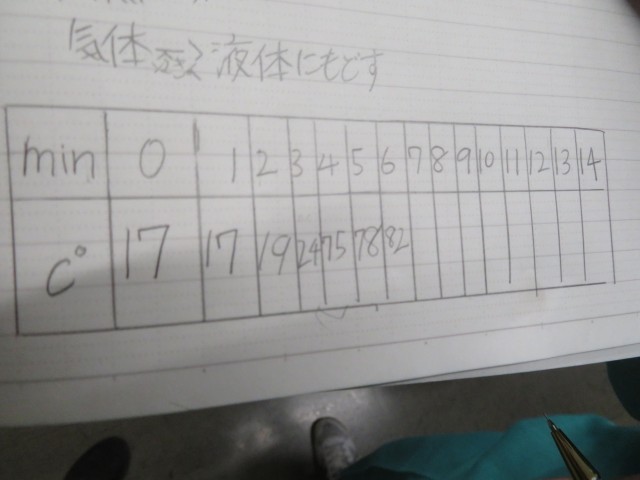 気体 液体にもどす
min 0 1 2 3 4 5 6 7 8 9 10 11 12 13 14
C° 17 17 19 24 75 78 82